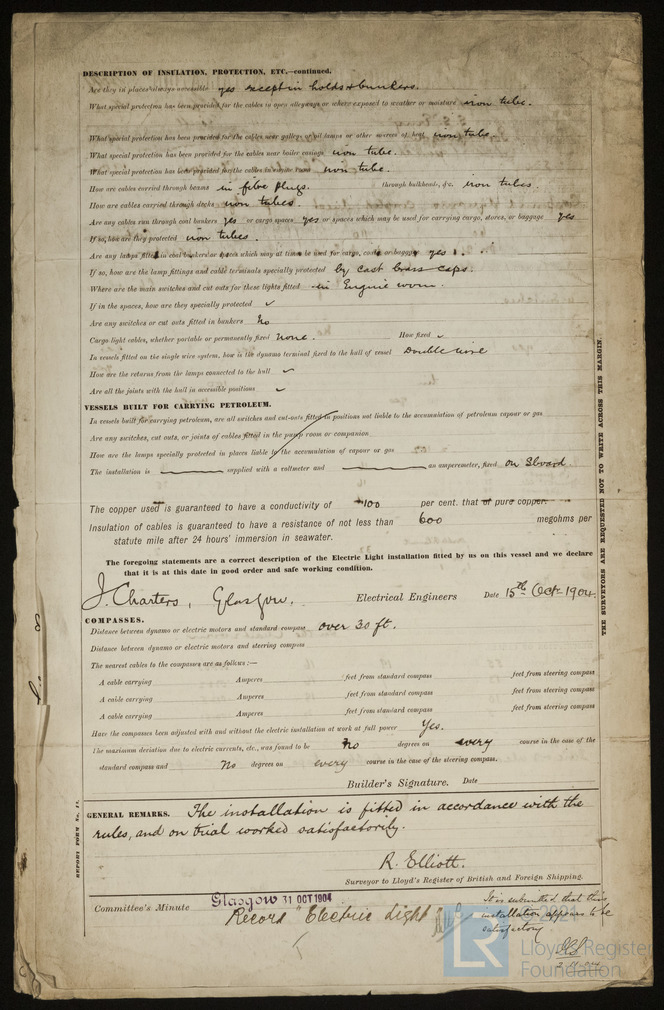 DESCRIPTION OF INSULATION, PROTECTION, ETC.—continued.
Are they in places always accessible yes except in holds & bunkers.
What special protection has been provided for the cables in open alleyways or where exposed to weather or moisture iron tube.
What special protection has been provided for the cables near galleys or oil lamps or other sources of heat iron tube.
What special protection has been provided for the cables near boiler casings iron tube.
What special protection has been provided for the cables in engine room iron tube.
How are cables carried through beams in fibre plugs. through bulkheads, &c. iron tubes.
How are cables carried through decks iron tubes.
Are any cables run through coal bunkers yes or cargo spaces yes or spaces which may be used for carrying cargo, stores, or baggage yes
If so, how are they protected iron tubes.
Are any lamps fitted in coal bunkers or spaces which may at times be used for cargo, coals or baggage yes.
If so, how are the lamp fittings and cable terminals specially protected by cast brass caps.
Where are the main switches and cut outs for these lights fitted in Engine room.
If in the spaces, how are they specially protected ✓
Are any switches or cut outs fitted in bunkers No
Cargo light cables, whether portable or permanently fixed none. How fixed ✓
In vessels fitted on the single wire system, how is the dynamo terminal fixed to the hull of vessel Double wire
How are the returns from the lamps connected to the hull ✓
Are all the joints with the hull in accessible positions ✓
VESSELS BUILT FOR CARRYING PETROLEUM.
In vessels built for carrying petroleum, are all switches and cut-outs fitted in positions not liable to the accumulation of petroleum vapour or gas
Are any switches, cut outs, or joints of cables fitted in the pump room or companion
How are the lamps specially protected in places liable to the accumulation of vapour or gas
The installation is supplied with a voltmeter and an amperemeter, fixed on Sboard.
The copper used is guaranteed to have a conductivity of 100 per cent. that of pure copper.
Insulation of cables is guaranteed to have a resistance of not less than 600 megohms per
statute mile after 24 hours' immersion in seawater.
The foregoing statements are a correct description of the Electric Light installation fitted by us on this vessel and we declare
that it is at this date in good order and safe working condition.
J. Charters, Glasgow. Electrical Engineers Date 15th Oct. 1904.
COMPASSES.
Distance between dynamo or electric motors and standard compass over 30 ft.
Distance between dynamo or electric motors and steering compass
The nearest cables to the compasses are as follows:—
A cable carrying Amperes feet from standard compass feet from steering compass
A cable carrying Amperes feet from standard compass feet from steering compass
A cable carrying Amperes feet from standard compass feet from steering compass
Have the compasses been adjusted with and without the electric installation at work at full power Yes.
The maximum deviation due to electric currents, etc., was found to be No degrees on every course in the case of the
standard compass and No degrees on every course in the case of the steering compass.
Builder's Signature. Date
GENERAL REMARKS. The installation is fitted in accordance with the
rules, and on trial worked satisfactorily.
R. Elliott.
Surveyor to Lloyd's Register of British and Foreign Shipping.
Committee's Minute Glasgow 31 OCT 1904
Record "Electric Light"
It is submitted that this
installation appears to be
satisfactory
THE SURVEYORS ARE REQUESTED NOT TO WRITE ACROSS THIS MARGIN.
REPORT FORM No. 17.
© 2021
LR
Lloyd's Register
Foundation